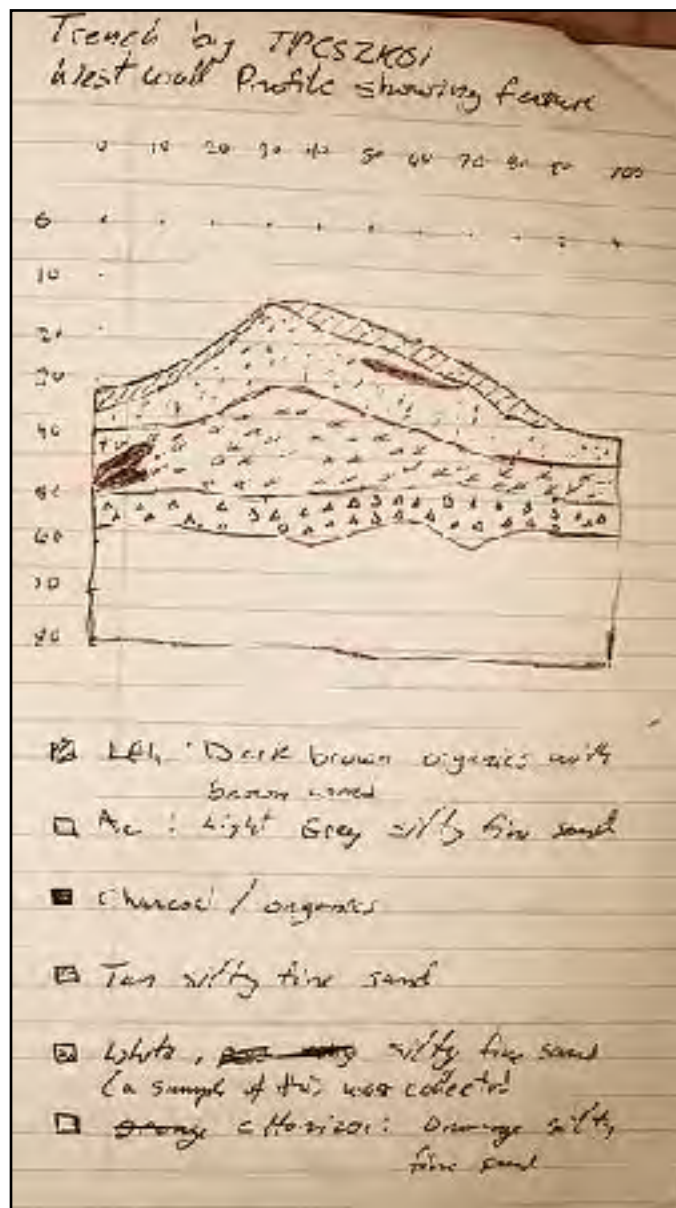 Trench by
West wall Profile showing feature
0 10 20 30 40 50 60 70 80 100
0
10
20
30
40
50
60
70
80
Dark brown organics with
brown
Light Grey silty fine sand
Charcoal / organics
Tan silty fine sand
White, silty fine sand
(a sample of this was collected
C Horizon: Orange silty
fine sand